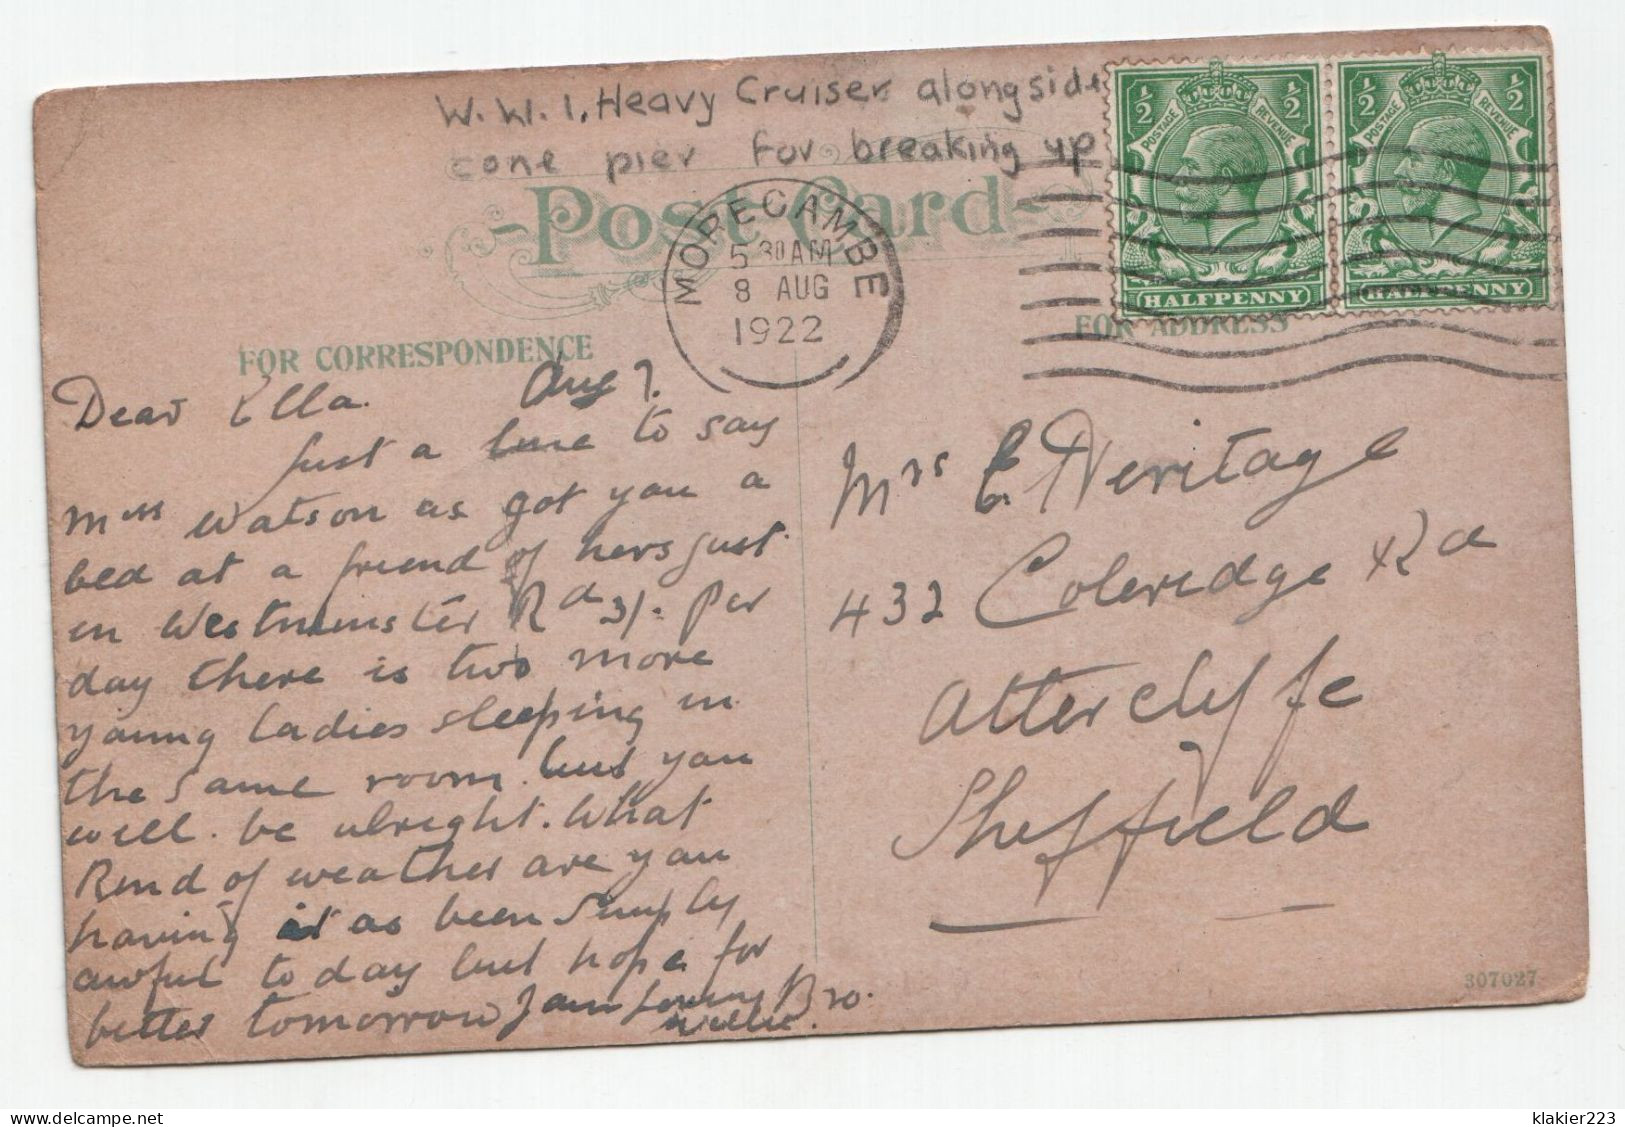 W.W.1. Heavy Cruiser alongside
cone pier for breaking up
Post Card
MORECAMBE
5 30 AM
8 AUG
1922
½ ½
POSTAGE REVENUE
HALFPENNY
½ ½
POSTAGE REVENUE
HALFPENNY
FOR CORRESPONDENCE
FOR ADDRESS
Dear Ella. Aug 7.
Just a line to say
Miss Watson as got you a
bed at a friend of hers just
in Westminster Rd 3/- per
day there is two more
young ladies sleeping in
the same room but you
will. be alright. What
Kind of weather are you
having it as been simply
awful to day but hope for
better tomorrow I am Loving Bro.
Willie.
Mrs E Heritage
432 Coleridge Rd
Attercliffe
Sheffield
307027
klakier223